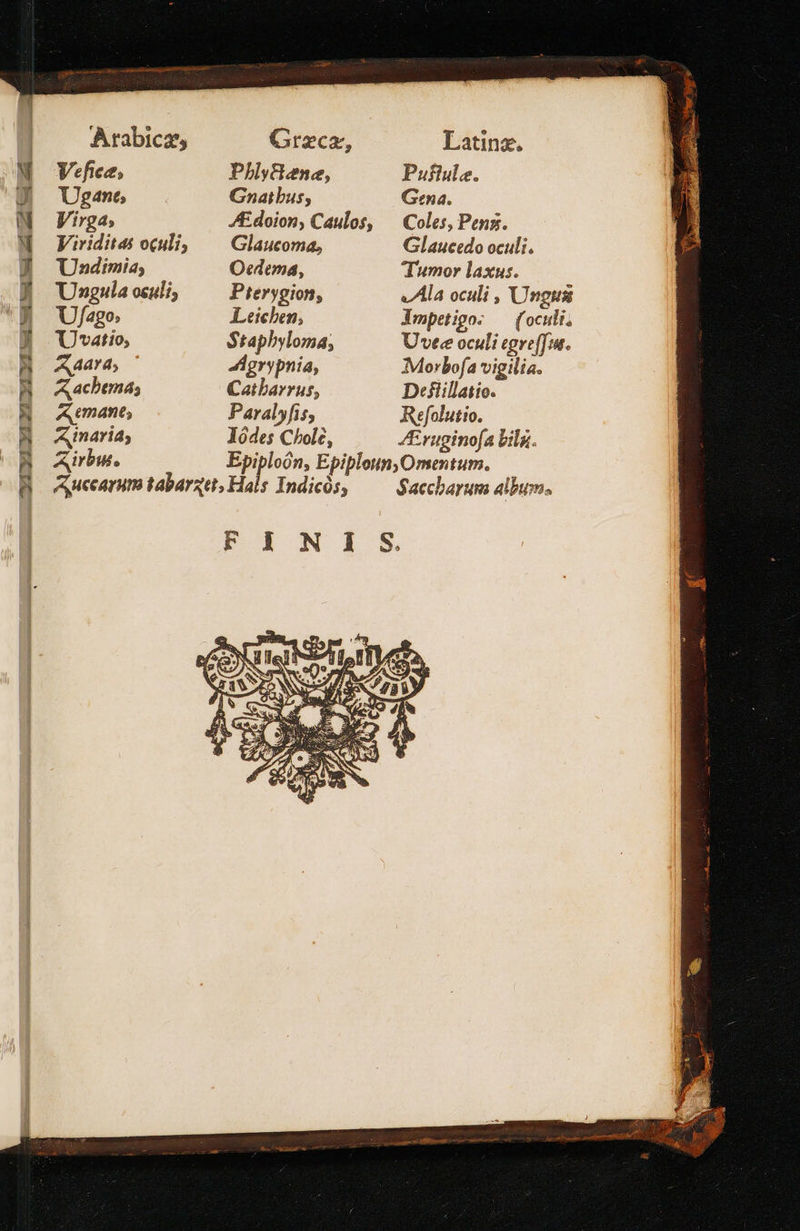 Arabicæ, Græcæ, Latinæ.
Veſicæ, Phlyctænæ, Puſtulæ.
Ugane, Gnathus, Gena.
Virga, Ædoion, Caulos, Coles, Penis.
Viriditas oculi, Glaucoma, Glaucedo oculi.
Undimia, Oedema, Tumor laxus.
Ungula oculi, Pterygion, Ala oculi, Unguis
Uſago, Leichen, Impetigo. (oculi.
Uvatio, Staphyloma, Uveæ oculi egreſſus.
Zaara, Agrypnia, Morboſa vigilia.
Zachema, Catharrus, Deſtillatio.
Zemane, Paralyſis, Reſolutio.
Zinaria, Iódes Cholè, Æruginoſa bilis.
Zirbus. Epiploòn, Epiploun, Omentum.
Zuccarum tabarzet, Hals Indicòs, Saccharum album.
FINIS.